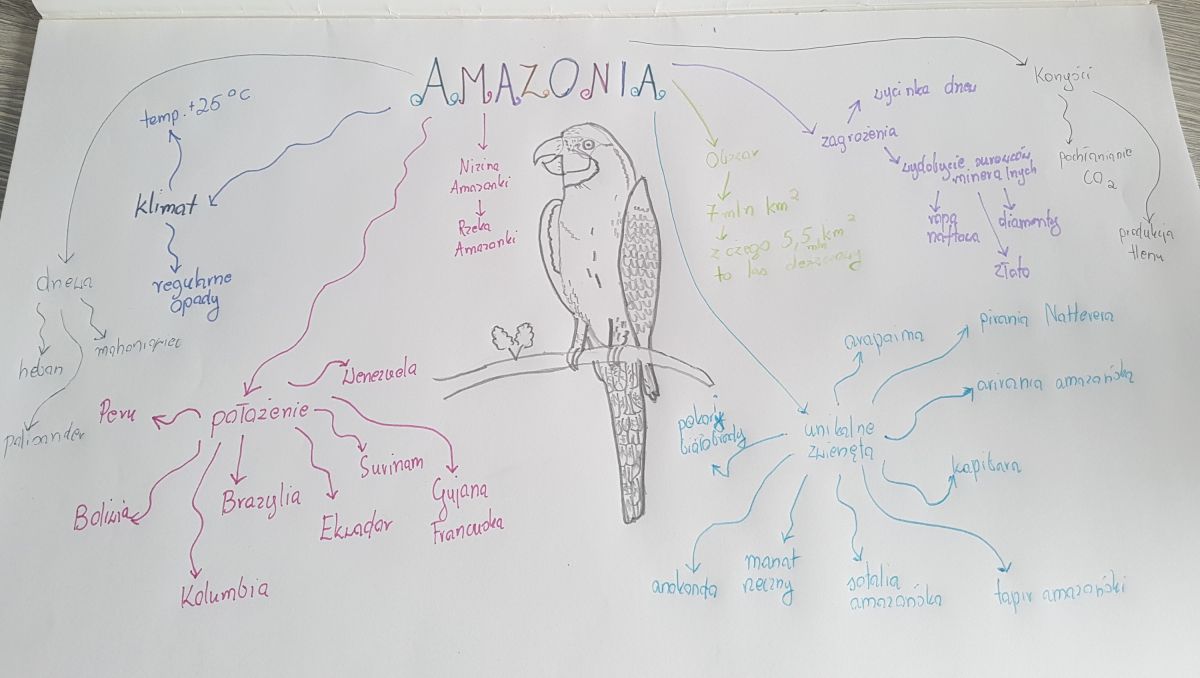 AMAZONIA
temp. +25°C
klimat
regularne
opady
drzewa
heban
mahoniowiec
palisander
położenie
Wenezuela
Peru
Boliwia
Kolumbia
Brazylia
Ekwador
Surinam
Gujana
Francuska
Nizina
Amazonki
Rzeka
Amazonki
Obszar
7 mln km²
z czego 5,5 mln km²
to las deszczowy
zagrożenia
wycinka drzew
wydobycie surowców
mineralnych
ropa
naftowa
złoto
diamenty
Korzyści
pochłanianie
CO₂
produkcja
tlenu
unikalne
zwierzęta
arapaima
pirania Natterera
arirania amazońska
kapibara
tapir amazoński
sotalia
amazońska
manat
rzeczny
anakonda
pekari
białobrody